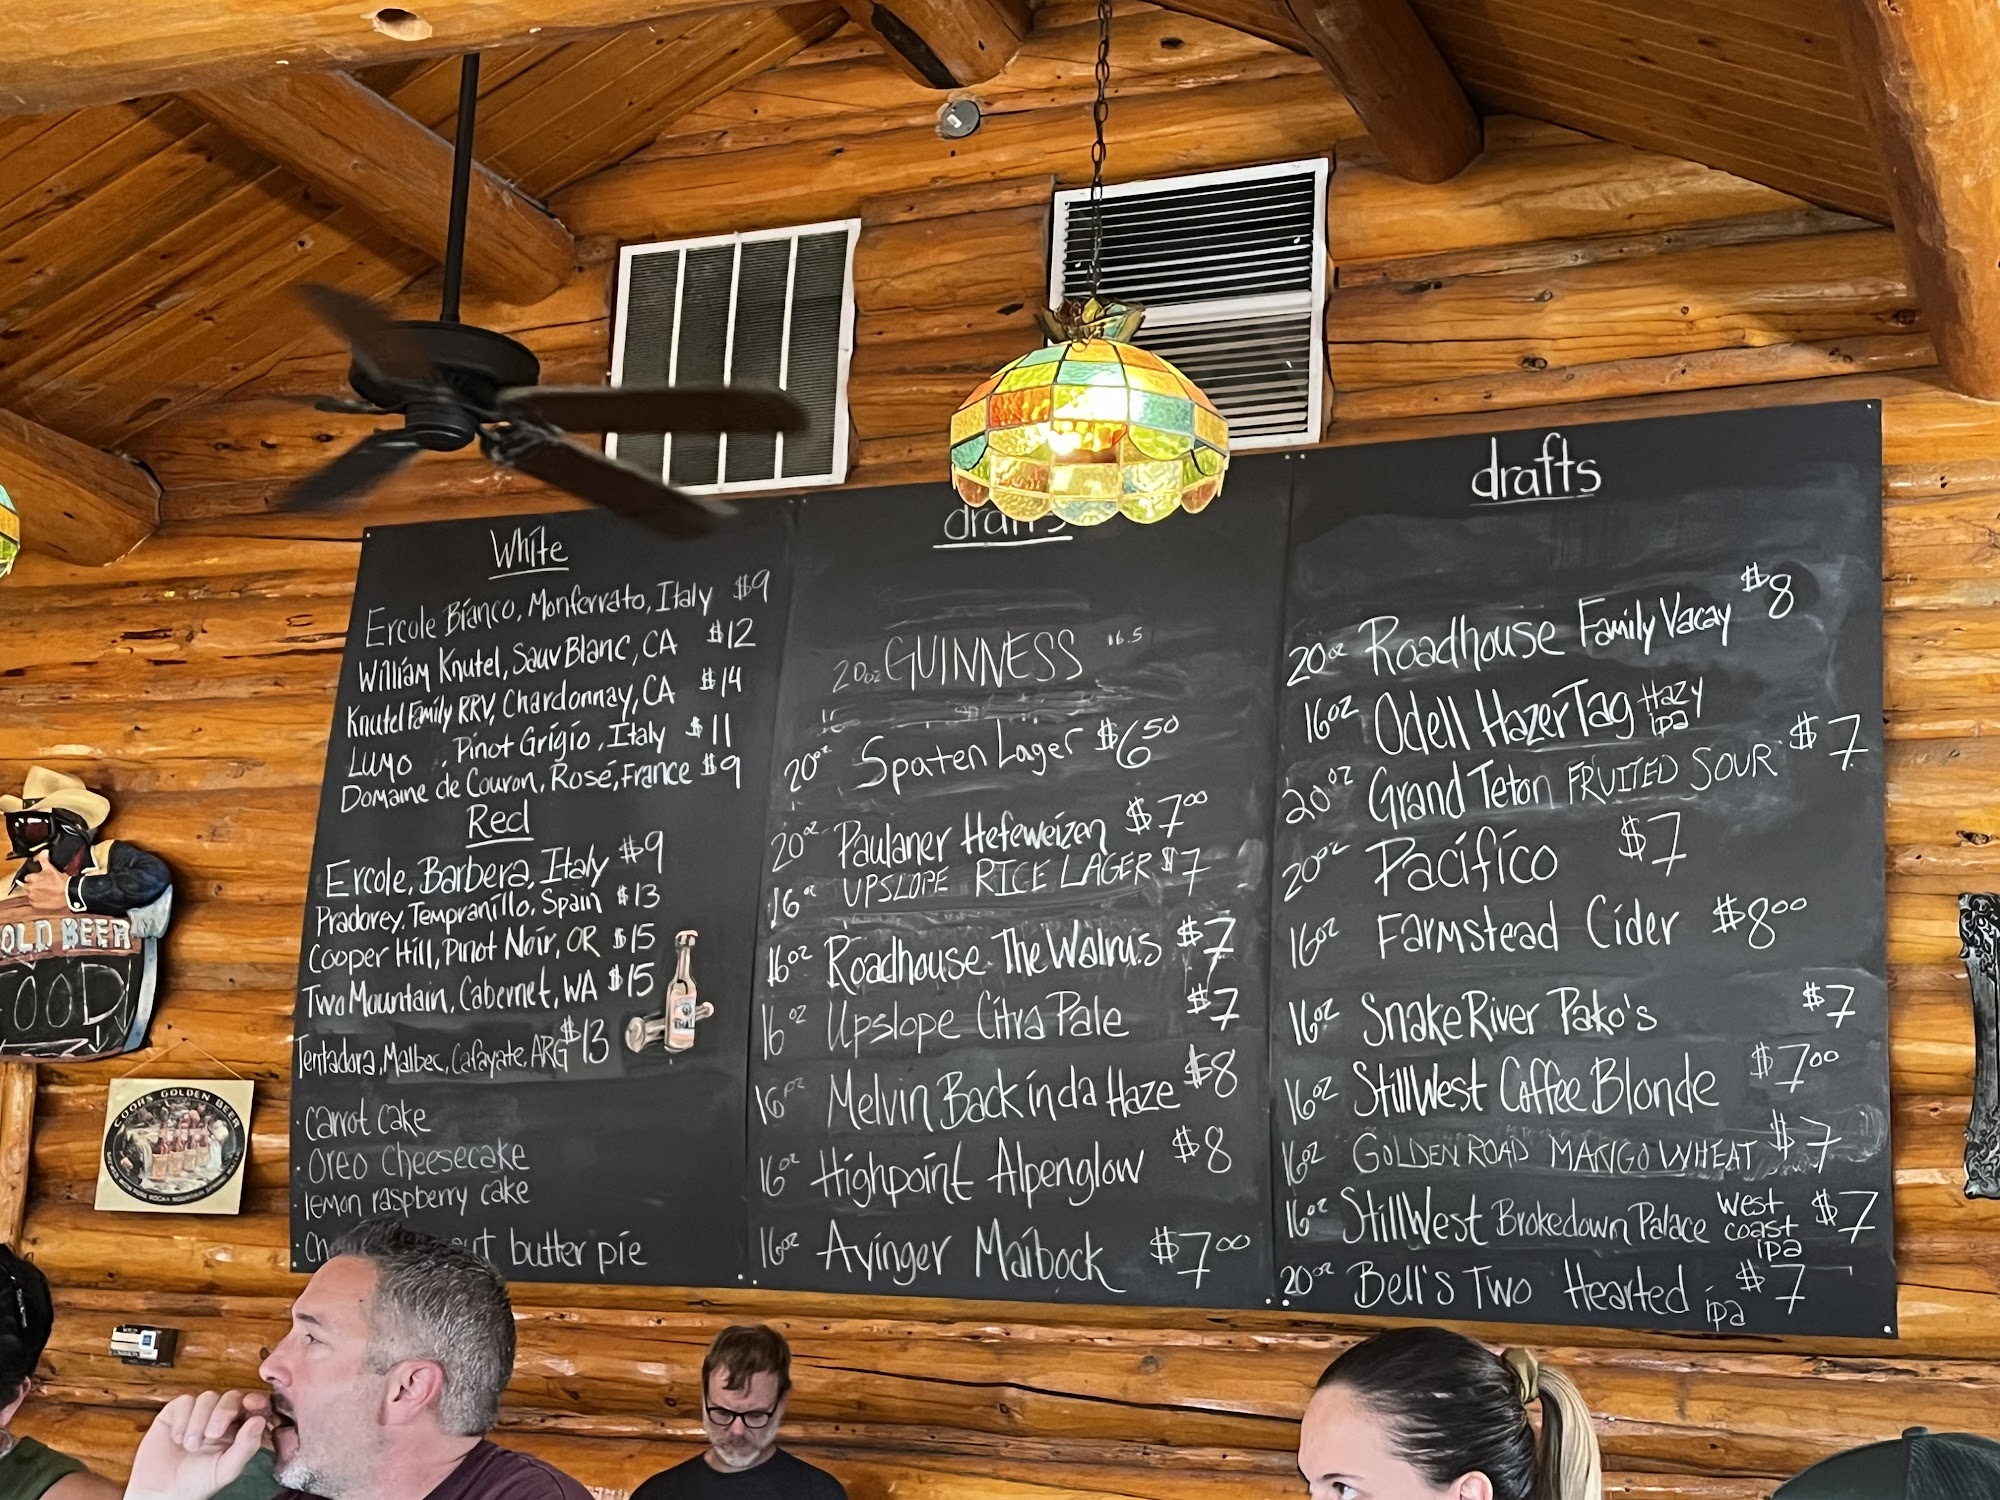 White
Ercole Bianco, Monferrato, Italy $9
William Knutel, Sauv Blanc, CA $12
Knutel Family RRV, Chardonnay, CA $14
LUMO .. Pinot Grigio, Italy $11
Domaine de Couron, Rosé, France $9
Red
Ercole, Barbera, Italy $9
Pradorey, Tempranillo, Spain $13
Cooper Hill, Pinot Noir, OR $15
Two Mountain, Cabernet, WA $15
Tentadora, Malbec, Cafayate, ARG $13
· carrot cake
· oreo cheesecake
· lemon raspberry cake
· butter pie
drafts
20oz GUINNESS $6.5
20oz Spaten Lager $6.50
20oz Paulaner Hefeweizen $7.00
16oz UPSLOPE RICE LAGER $7
16oz Roadhouse The Walrus $7
16oz Upslope Citra Pale $7
16oz Melvin Back in da Haze $8
16oz Highpoint Alpenglow $8
16oz Ayinger Maibock $7.00
drafts
20oz Roadhouse Family Vacay $8
16oz Odell Hazer Tag Hazy ipa
20oz Grand Teton FRUITED SOUR $7
20oz Pacifico $7
16oz Farmstead Cider $8.00
16oz Snake River Pako's $7
16oz StillWest Coffee Blonde $7.00
16oz GOLDEN ROAD MANGO WHEAT $7
16oz StillWest Brokedown Palace West coast ipa $7
20oz Bell's Two Hearted ipa $7
OLD BEER
OOD
COORS GOLDEN BEER